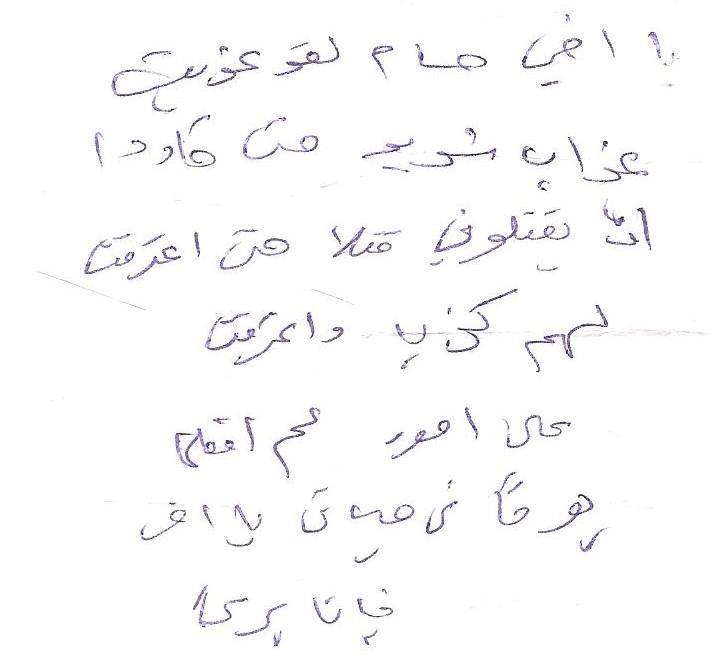 يا اخي حسام لقد عذبت
عذاب شديد حتى كادوا
ان يقتلوني قتلا حتى اعترفت
لهم كذب واعترفت
على امور لم افعلها
يوما في حياتي يا اخي
فانا بريئ